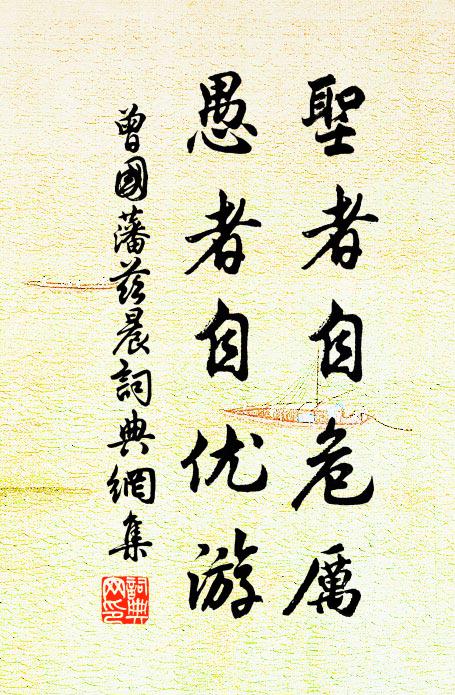 聖者自危厲
愚者自优游
曾國藩茲晨詞典網集
詞典
网印